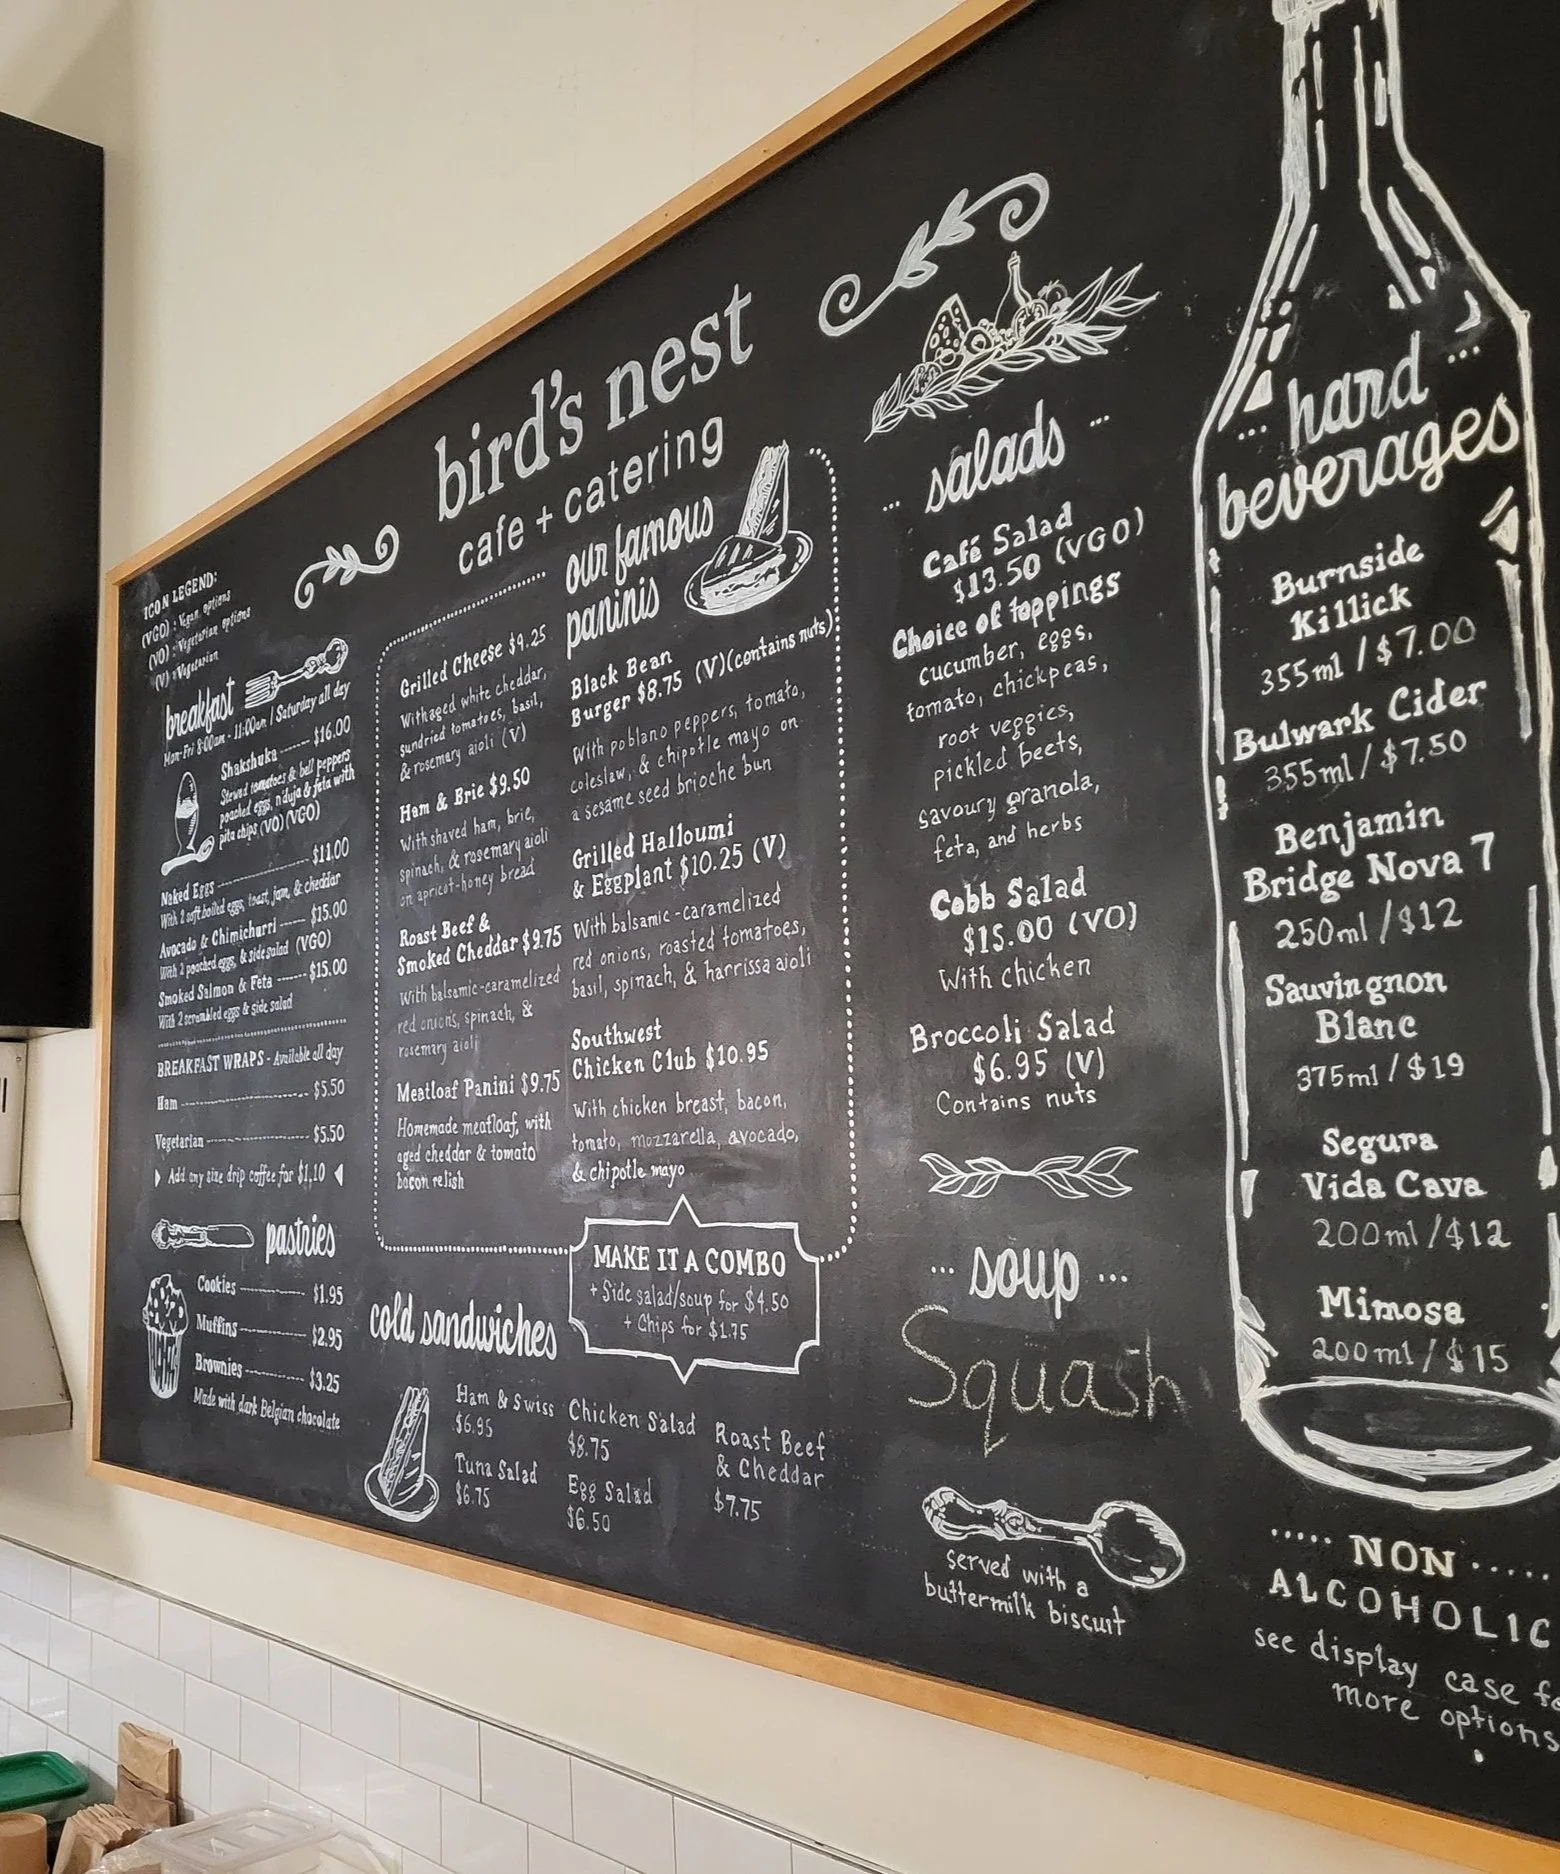 bird's nest
cafe + catering
ICON LEGEND:
(VGO): Vegan options
(VO): Vegetarian options
(V): Vegetarian
breakfast
Mon-Fri 8:00am - 11:00am / Saturday all day
Shakshuka $16.00
Stewed tomatoes & bell peppers
poached eggs, n'duja & feta with
pita chips (VO)(VGO)
Naked Eggs $11.00
With 2 soft boiled eggs, toast, jam, & cheddar
Avocado & Chimichurri $15.00
With 2 poached eggs, & side salad (VGO)
Smoked Salmon & Feta $15.00
With 2 scrambled eggs & side salad
BREAKFAST WRAPS - Available all day
Ham $5.50
Vegetarian $5.50
Add any size drip coffee for $1.10
pastries
Cookies $1.95
Muffins $2.95
Brownies $3.25
Made with dark Belgian chocolate
our famous
paninis
Grilled Cheese $9.25
With aged white cheddar,
sundried tomatoes, basil,
& rosemary aioli (V)
Ham & Brie $9.50
With shaved ham, brie,
spinach, & rosemary aioli
on apricot-honey bread
Roast Beef &
Smoked Cheddar $9.75
With balsamic-caramelized
red onions, spinach, &
rosemary aioli
Meatloaf Panini $9.75
Homemade meatloaf, with
aged cheddar & tomato
bacon relish
Black Bean
Burger $8.75 (V)(contains nuts)
With poblano peppers, tomato,
coleslaw, & chipotle mayo on
a sesame seed brioche bun
Grilled Halloumi
& Eggplant $10.25 (V)
With balsamic-caramelized
red onions, roasted tomatoes,
basil, spinach, & harrissa aioli
Southwest
Chicken Club $10.95
With chicken breast, bacon,
tomato, mozzarella, avocado,
& chipotle mayo
MAKE IT A COMBO
+ Side salad/soup for $4.50
+ Chips for $1.75
cold sandwiches
Ham & Swiss
$6.95
Tuna Salad
$6.75
Chicken Salad
$8.75
Egg Salad
$6.50
Roast Beef
& Cheddar
$7.75
... salads ...
Café Salad
$13.50 (VGO)
Choice of toppings
cucumber, eggs,
tomato, chickpeas,
root veggies,
pickled beets,
savoury granola,
feta, and herbs
Cobb Salad
$15.00 (VO)
With chicken
Broccoli Salad
$6.95 (V)
Contains nuts
... soup ...
Squash
served with a
buttermilk biscuit
... hard ...
beverages
Burnside
Killick
355ml / $7.00
Bulwark Cider
355ml / $7.50
Benjamin
Bridge Nova 7
250ml / $12
Sauvingnon
Blanc
375ml / $19
Segura
Vida Cava
200ml / $12
Mimosa
200ml / $15
..... NON .....
ALCOHOLIC
see display case fo
more options